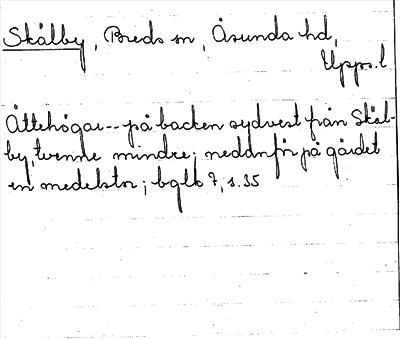 Skålby, Breds sn, Åsunda hd,
Upps. l
Ättehögar -- på backen sydvest från Skål-
by, tvenne mindre; neddnför på gärdet
en medelstor; bglb 7, s. 35